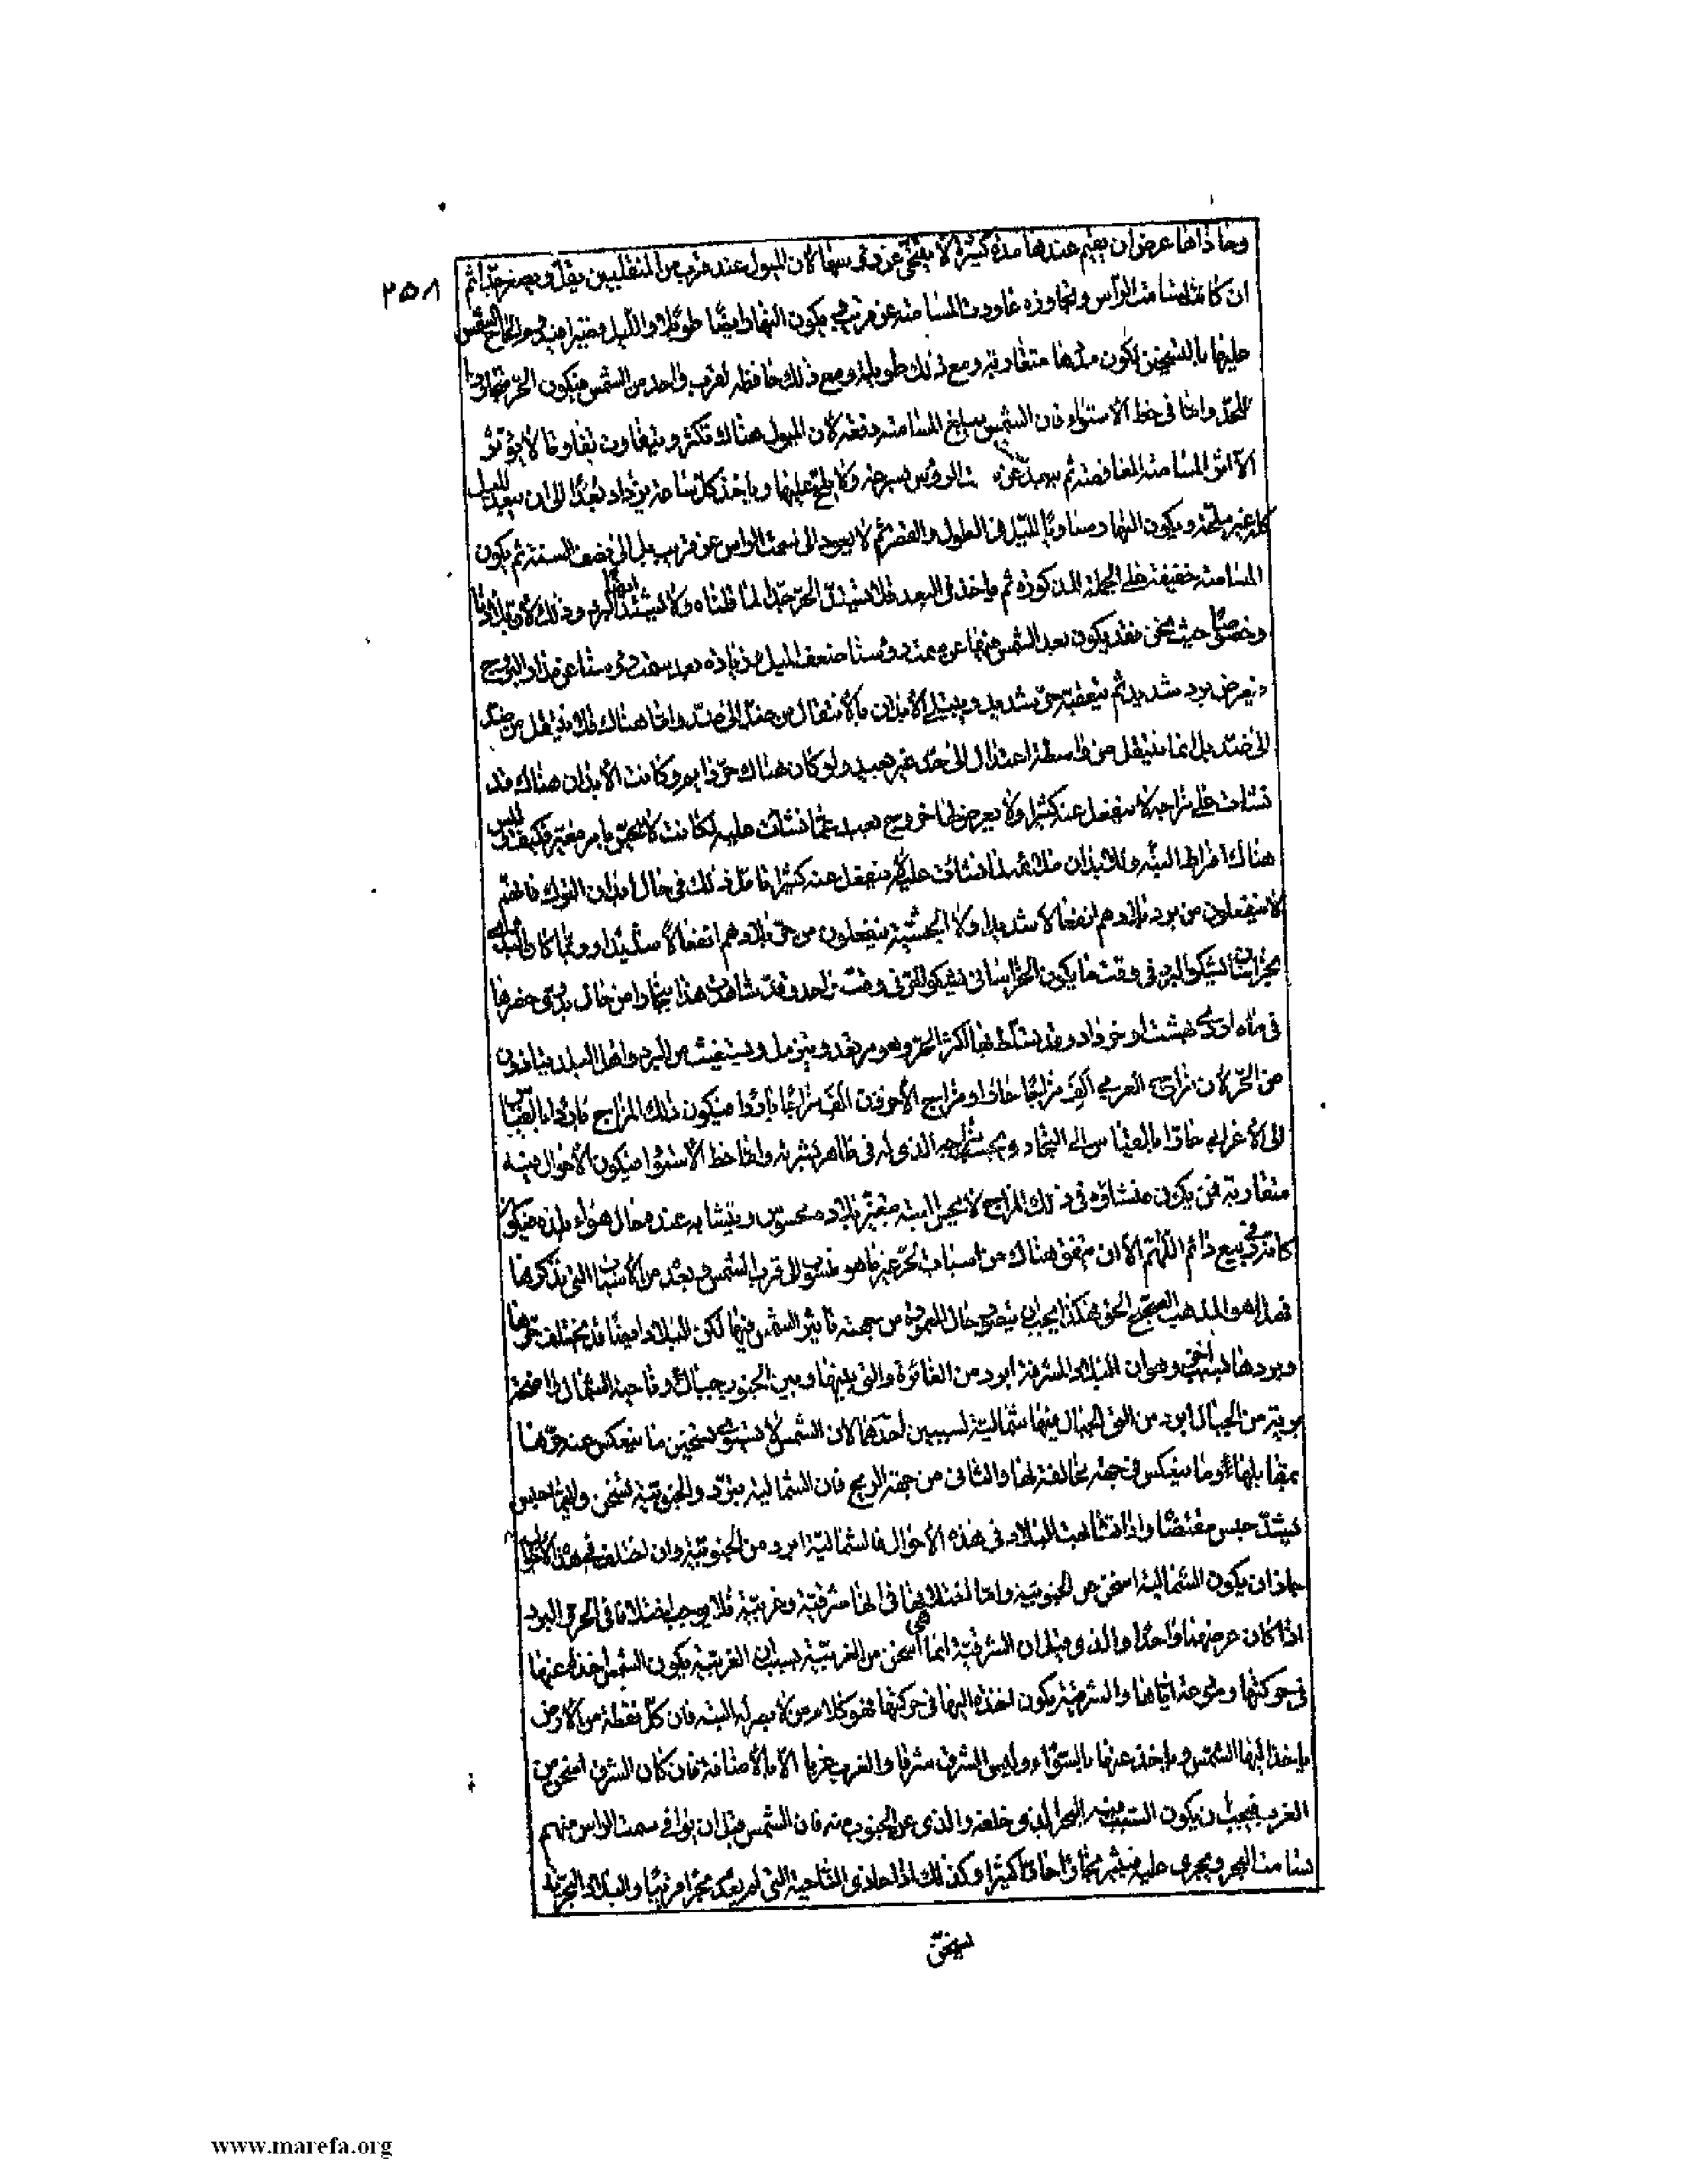 ٢٥٨
وحاذاها عرض ان يقيم عندها مدة كثيرة لا يتنحى عن رؤسها لان الميول عند قرب من المنقلبين يقل ويصغر جدا ثم
ان كانت سامت الرأس وتجاوزه عاودت المسامتة عن قريب ويكون النهار ايضا طويلا والليل قصيرا فيدوم الحاح الشمس
عليها بالتسخين لكون مدتها متقاربة ومع ذلك طويلة ومع ذلك حافظة لقرب واحد من الشمس فيكون الحر متقاربا
للحد واما فى خط الاستواء فان الشمس يبلغ المسامتة دفعة لان الميول هناك تكثر ويتفاوت تفاوتا لا يؤثر
الا اثر المسامتة المغافصة ثم يبعد عن سمت الرؤس بسرعة ولا يلح عليها وياخذ كل ساعة يزداد بعدا الى ان يبعد الميل
كله غير ملحة ويكون النهار مساويا لليل فى الطول والقصر ثم لا يعود الى سمت الراس عن قريب بل الى نصف السنة ثم يكون
المسامتة خفيفة على الجملة المذكورة ثم ياخذ فى البعد فلا يشتد الحر جدا لما قلناه ولا يشتد ايضا البرد وذلك لان بلادنا
وخصوصا حيث نحن فقد يكون بعد الشمس منها عن سمت رؤسنا ضعف الميل مع زيادة بعد سمت رؤسنا عن مدار البروج
فيعرض برد شديد ثم يتعقبه حر شديد ويبتلى الابدان بالانتقال من ضد الى ضد واما هناك فلا ينتقل من ضد
الى ضد بل انما ينتقل من واسطة اعتدال الى حد غير بعيد ولو كان هناك حر دائم وكانت الابدان هناك قد
نشات على مزاجه لا ينفعل عنه كثيرا ولا يعرض لها خروج بعيد عما نشات عليه لكانت لا تحس بامر مغير فكيف وليس
هناك افراط البتة وللابدان ملائمة لما نشات عليه لا ينفعل عنه كثيرا تامل ذلك فى حال ابدان الترك فانهم
لا ينفعلون من برد بلادهم انفعالا شديدا ولا الحبشة ينفعلون من حر بلادهم انفعالا شديدا وربما كان البدوى
بخراسان يشكو البرد فى وقت ما يكون الخراسانى يشكو الحر فى وقت واحد وقد شاهدت هذا ببخارا من حال بدوى حضرها
فى ماه ارديبهشت او خرداد وقد تسلط بها الحر وهو يرتعد ويتزمل ويستغيث من البرد واهل البلد يتاذون
من الحر لان مزاج العربى الف مزاجا حارا ومزاج الاخرون الف مزاجا باردا فيكون ذلك المزاج باردا بالقياس
الى الاعرابى حارا بالقياس الى البخارى بحسب مزاجه الذى له فى ظاهر بشرته واما خط الاستوا فيكون الاحوال فيه
متقاربة فمن يكون منشاؤه فى ذلك المزاج لا يحس البتة بتغير بلاد محسوس ويتشابه عنده حال هواء بلده فيكون
كانه فى ربيع دائم اللهم الا ان يتفق هناك من اسباب الحر غير ما هو منسوب الى قرب الشمس وبعده من الاسباب التى نذكرها
فهذا هو المذهب الصحيح الحق هكذا يجب ان يتصور حال المعمورة من جهة تاثير الشمس فيها لكن البلاد ايضا قد يختلف حرها
وبردها بسبب اخر وهو ان البلاد المشرفة ابرد من الغائرة والتى بينها وبين الجنوب جبال وناحية الشمال واضحة
برية من الجبال ابرد من التى الجبال فيها شمالية لسببين احدهما لان الشمس لا يستوى تسخين ما ينعكس عنه حرها
بمقابلها وما ينعكس فى جهة مخالفة لها والثانى من جهة الريح فان الشمالية يبرد والجنوبية تسخن وايتها حبس
يشتد حبس مقتضاها واذا تشابهت البلاد فى هذه الاحوال فالشمالية ابرد من الجنوبية وان اختلفت فى هذه الاحوال
جاز ان يكون الشمالية اسخن من الجنوبية واما اختلافها فى انها مشرقية ومغربية فلا يوجب اختلافا فى الحر والبرد
اذا كان عرضهما واحدا والذى قيل ان الشرقية انما هى اسخن من الغربية بسبب ان الغربية يكون الشمس اخذة عنها
فى حركتها ومزعجة اياها والشرقية يكون اخذة اليها فى حركتها فهو كلام من لا بصر له البتة فان كل نقطة من الارض
ياخذ اليها الشمس وياخذ عنها بالسواء وليس الشرق مشرقا والغرب غربا الا بالاضافة فان كان الشرق اسخن من
الغرب فيجب ان يكون السبب فيه البحر الذى خلفه والذى عن الجنوب منه فان الشمس قبل ان يوافى سمت الراس منهم
سامت البحر ويجرى عليه فيثير بخارا حارا كثيرا وكذلك اذا حاذى الناحية التى لم يعد بحرا قريبا والبلاد البحرية
يسخن
www.marefa.org